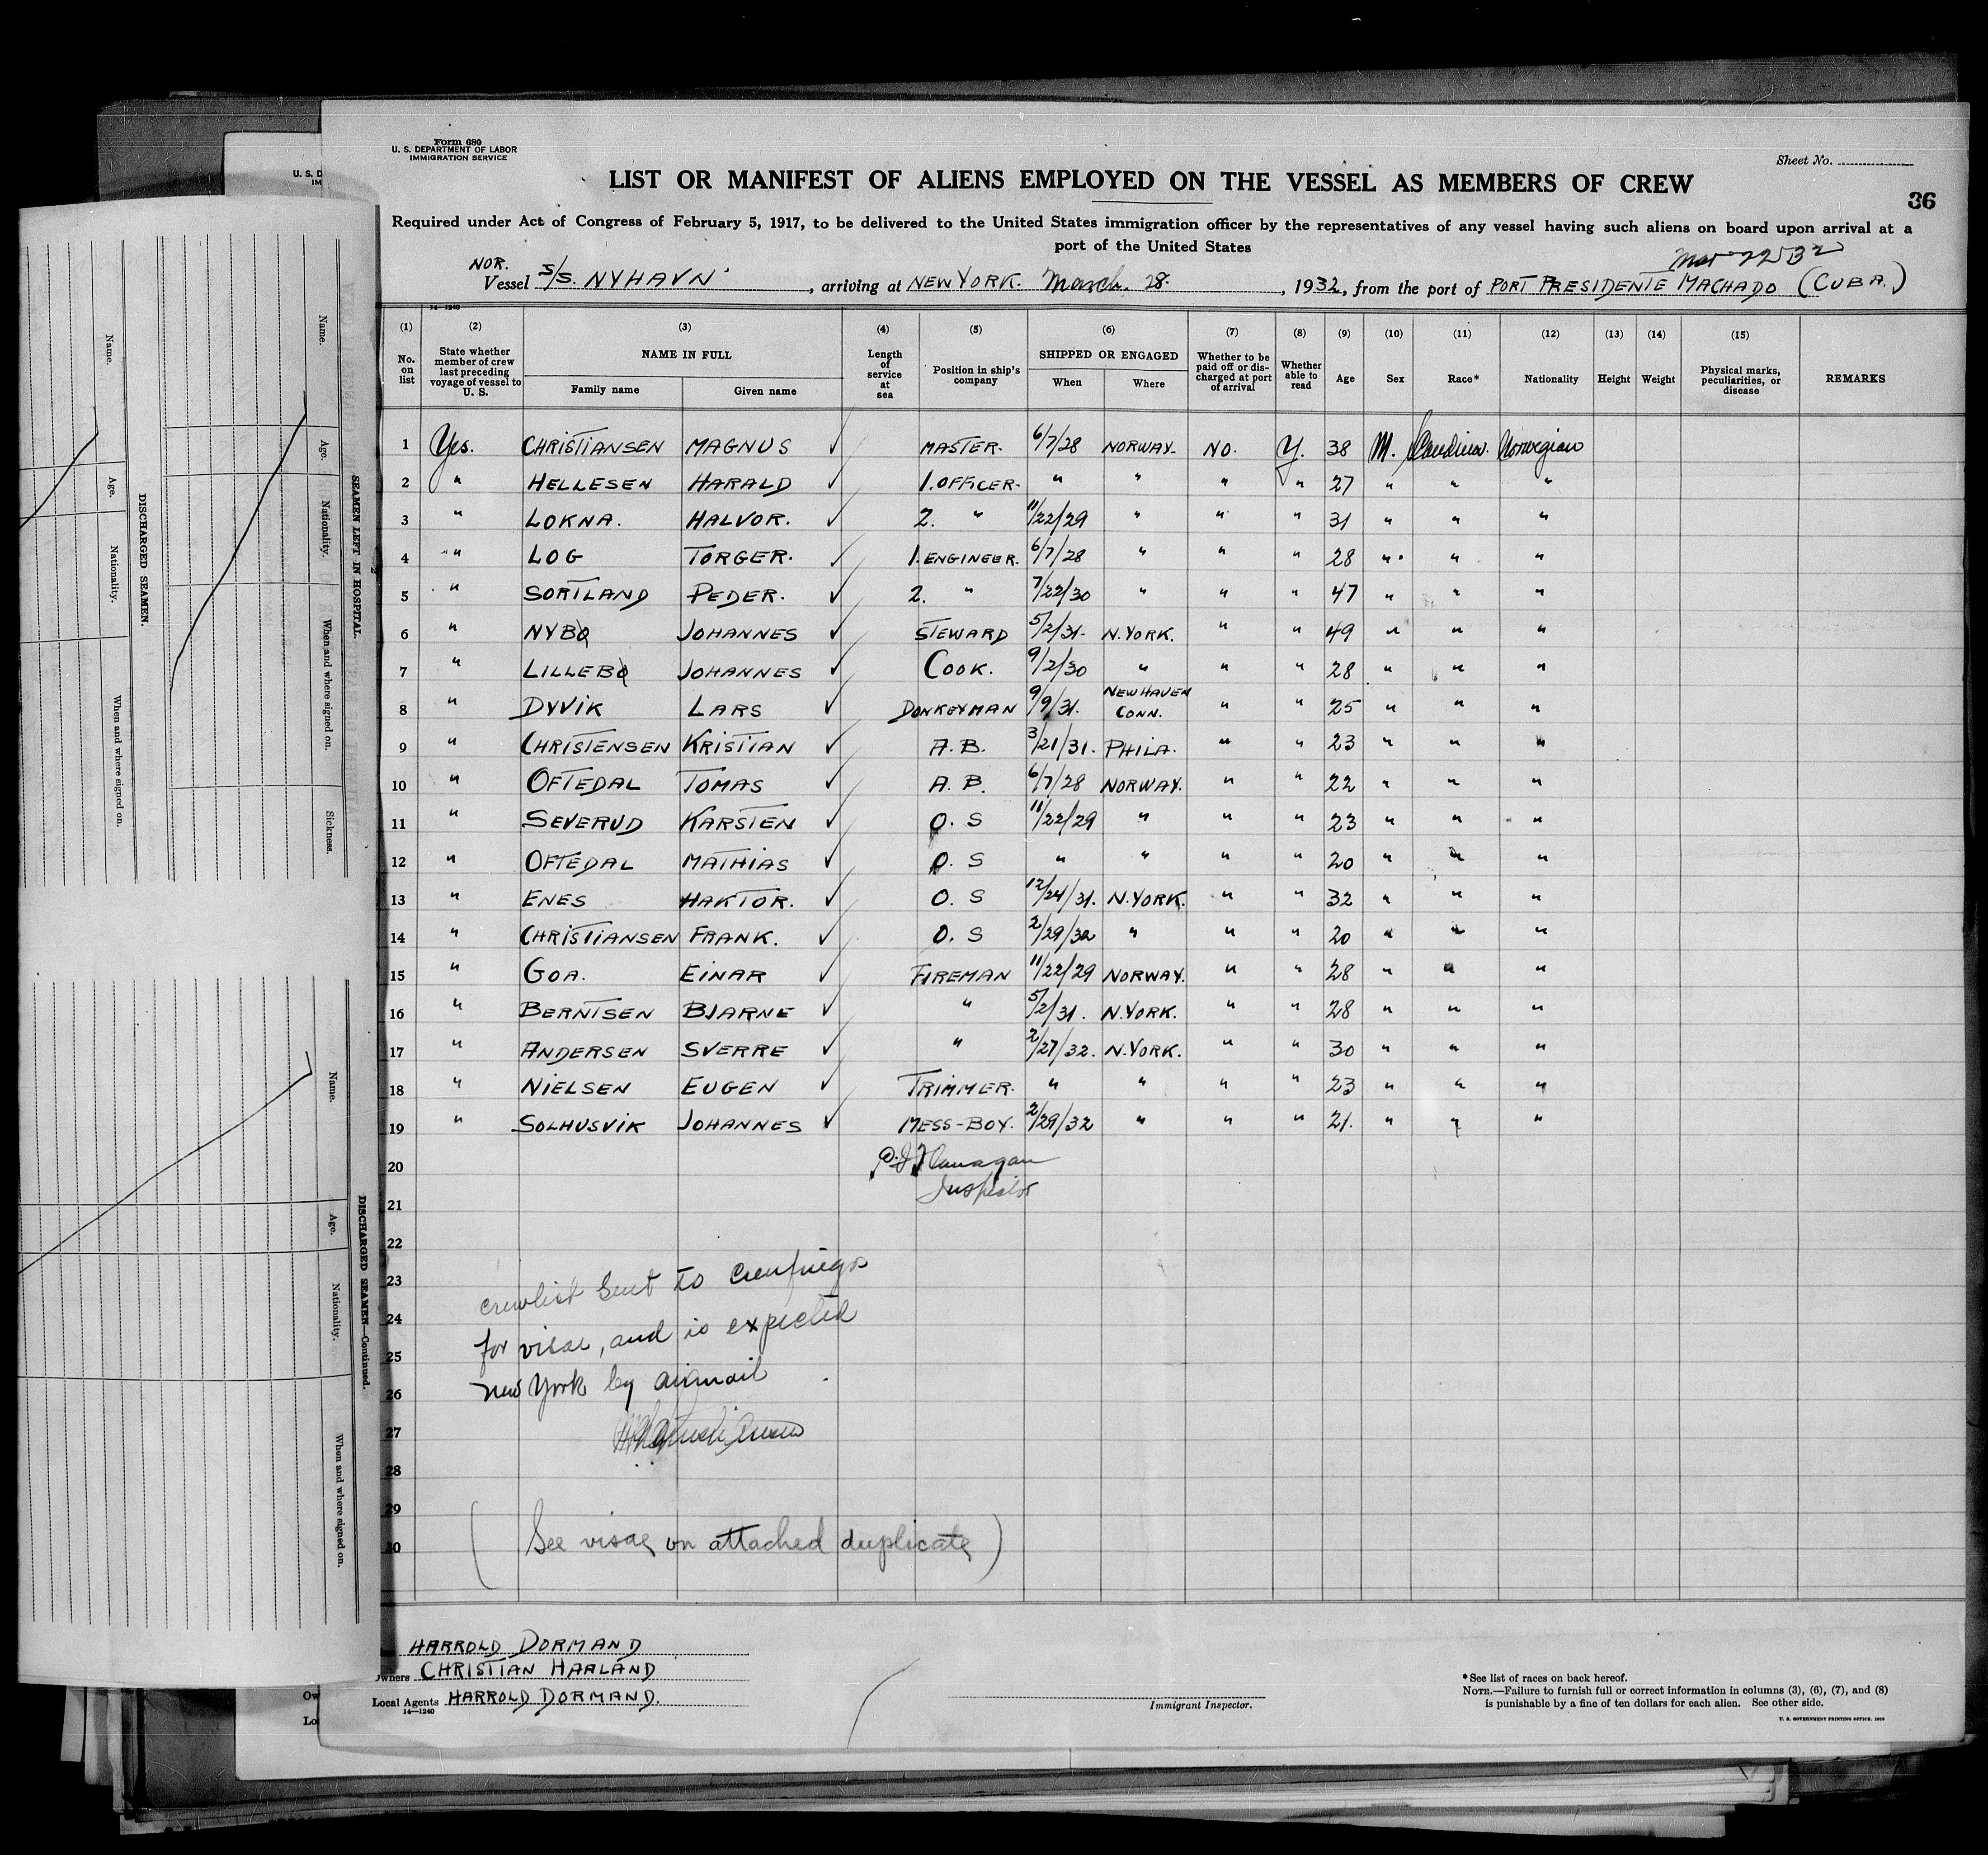 Form 680
U. S. DEPARTMENT OF LABOR
IMMIGRATION SERVICE
Sheet No.
LIST OR MANIFEST OF ALIENS EMPLOYED ON THE VESSEL AS MEMBERS OF CREW
36
Required under Act of Congress of February 5, 1917, to be delivered to the United States immigration officer by the representatives of any vessel having such aliens on board upon arrival at a
port of the United States
Mar 22 32
NOR.
Vessel S/S. NYHAVN, arriving at NEW YORK. March. 28., 1932, from the port of PORT PRESIDENTE MACHADO (CUBA.)
14—1240
(1) (2) (3) (4) (5) (6) (7) (8) (9) (10) (11) (12) (13) (14) (15)
No. on list | State whether member of crew last preceding voyage of vessel to U. S. | NAME IN FULL | Family name | Given name | Length of service at sea | Position in ship's company | SHIPPED OR ENGAGED | When | Where | Whether to be paid off or discharged at port of arrival | Whether able to read | Age | Sex | Race* | Nationality | Height | Weight | Physical marks, peculiarities, or disease | REMARKS
1 Yes. CHRISTIANSEN MAGNUS ✓ MASTER. 6/7/28 NORWAY. NO. Y. 38 M. Scandinav. Norwegian
2 " HELLESEN HARALD ✓ 1. OFFICER. " " " " 27 " " "
3 " LOKNA. HALVOR. ✓ 2. " 11/22/29 " " " 31 " " "
4 " LOG TORGER. ✓ 1. ENGINEER. 6/7/28 " " " 28 " " "
5 " SORTLAND PEDER. ✓ 2. " 7/22/30 " " " 47 " " "
6 " NYBØ JOHANNES ✓ STEWARD 5/2/31. N.YORK. " " 49 " " "
7 " LILLEBØ JOHANNES ✓ COOK. 9/2/30 " " " 28 " " "
8 " DYVIK LARS ✓ DONKEYMAN 9/9/31. NEW HAVEN CONN. " " 25 " " "
9 " CHRISTENSEN KRISTIAN ✓ A. B. 3/21/31. PHILA. " " 23 " " "
10 " OFTEDAL TOMAS ✓ A. B. 6/7/28 NORWAY. " " 22 " " "
11 " SEVERUD KARSTEN ✓ O. S 11/22/29 " " " 23 " " "
12 " OFTEDAL MATHIAS ✓ O. S " " " " 20 " " "
13 " ENES HAKTOR. ✓ O. S 12/24/31. N.YORK. " " 32 " " "
14 " CHRISTIANSEN FRANK. ✓ O. S 2/29/32 " " " 20 " " "
15 " GOA. EINAR ✓ FIREMAN 11/22/29 NORWAY. " " 28 " " "
16 " BERNTSEN BJARNE ✓ " 5/2/31. N.YORK. " " 28 " " "
17 " ANDERSEN SVERRE ✓ " 2/27/32. N.YORK. " " 30 " " "
18 " NIELSEN EUGEN ✓ TRIMMER. " " " " 23 " " "
19 " SOLHUSVIK JOHANNES ✓ MESS-BOY. 2/29/32 " " " 21. " " "
20 Flanagan
Inspector
21
22
23 crewlist sent to Cienfuegos
24 for visae, and is expected
25
26 New York by airmail
27
28
29
30 (See visae on attached duplicate)
HARROLD DORMAND
Owners CHRISTIAN HAALAND
Local Agents HARROLD DORMAND.
14—1240
Immigrant Inspector.
*See list of races on back hereof.
NOTE.—Failure to furnish full or correct information in columns (3), (6), (7), and (8)
is punishable by a fine of ten dollars for each alien. See other side.
U. S. GOVERNMENT PRINTING OFFICE. 1929
U. S. D
IM
SEAMEN LEFT IN HOSPITAL.
Name. Age. Nationality. When and where signed on. Sickness.
DISCHARGED SEAMEN.
Name. Age. Nationality. When and where signed on.
DISCHARGED SEAMEN—Continued.
Name. Age. Nationality. When and where signed on.
Ow
Lo